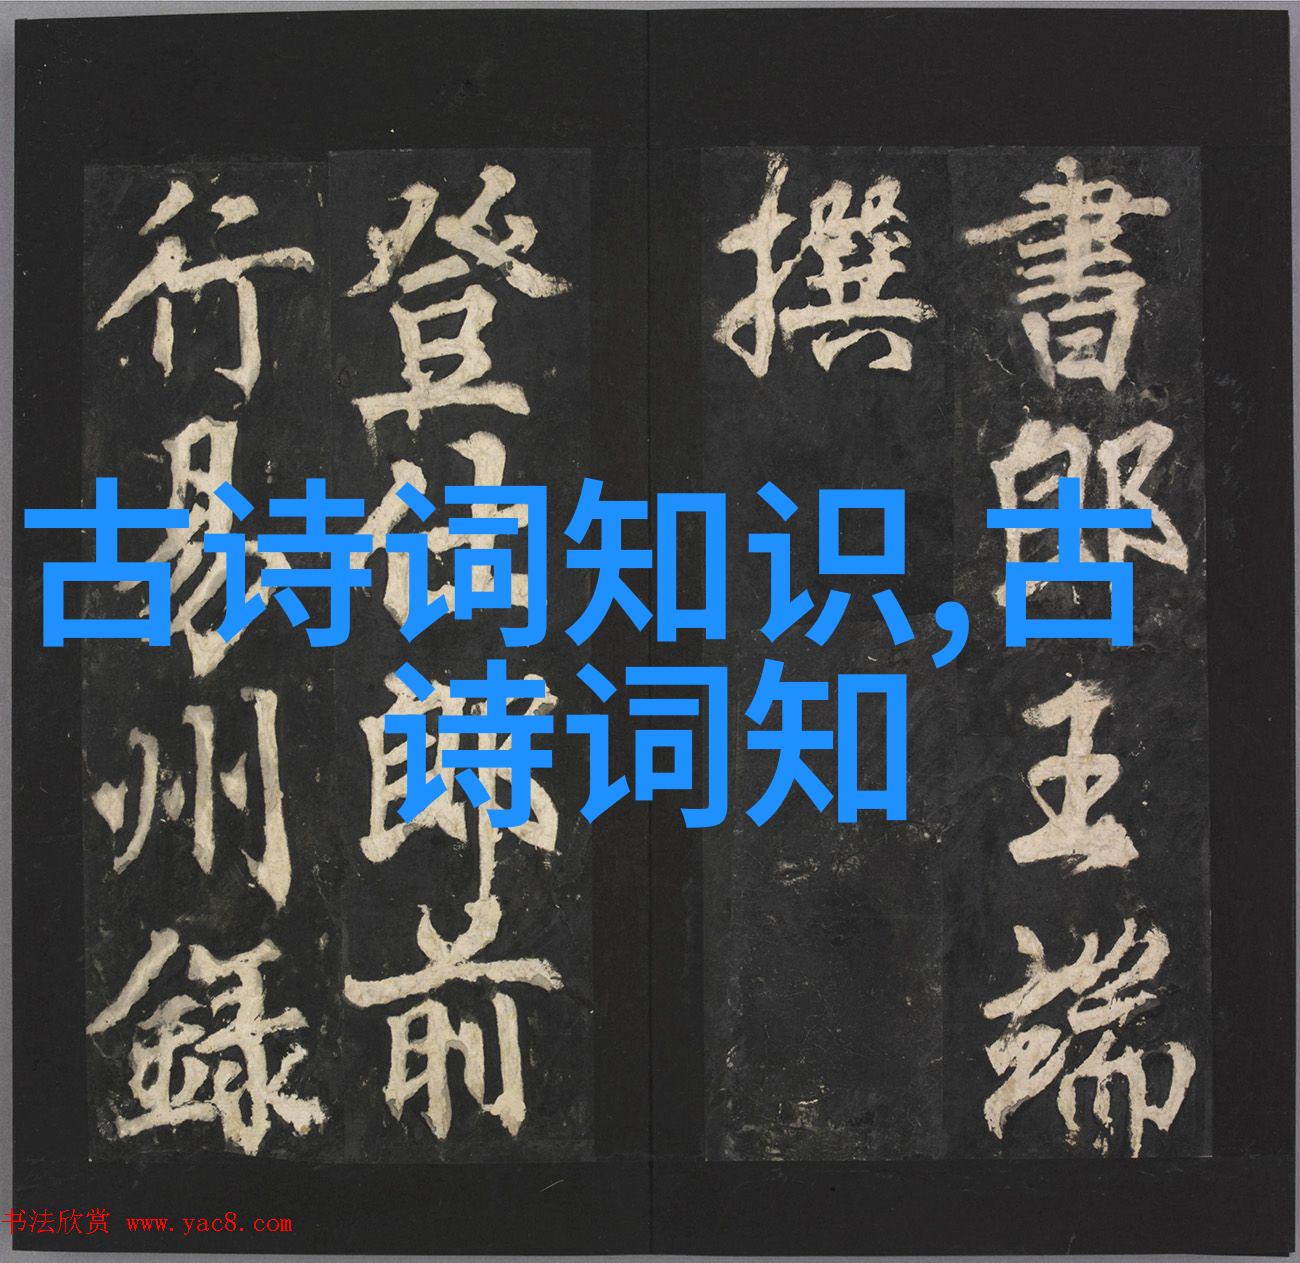 書郎王端
撰
登仕郎前
行易州錄
古诗词知识,古
诗词知
书法欣赏 www.yac8.com